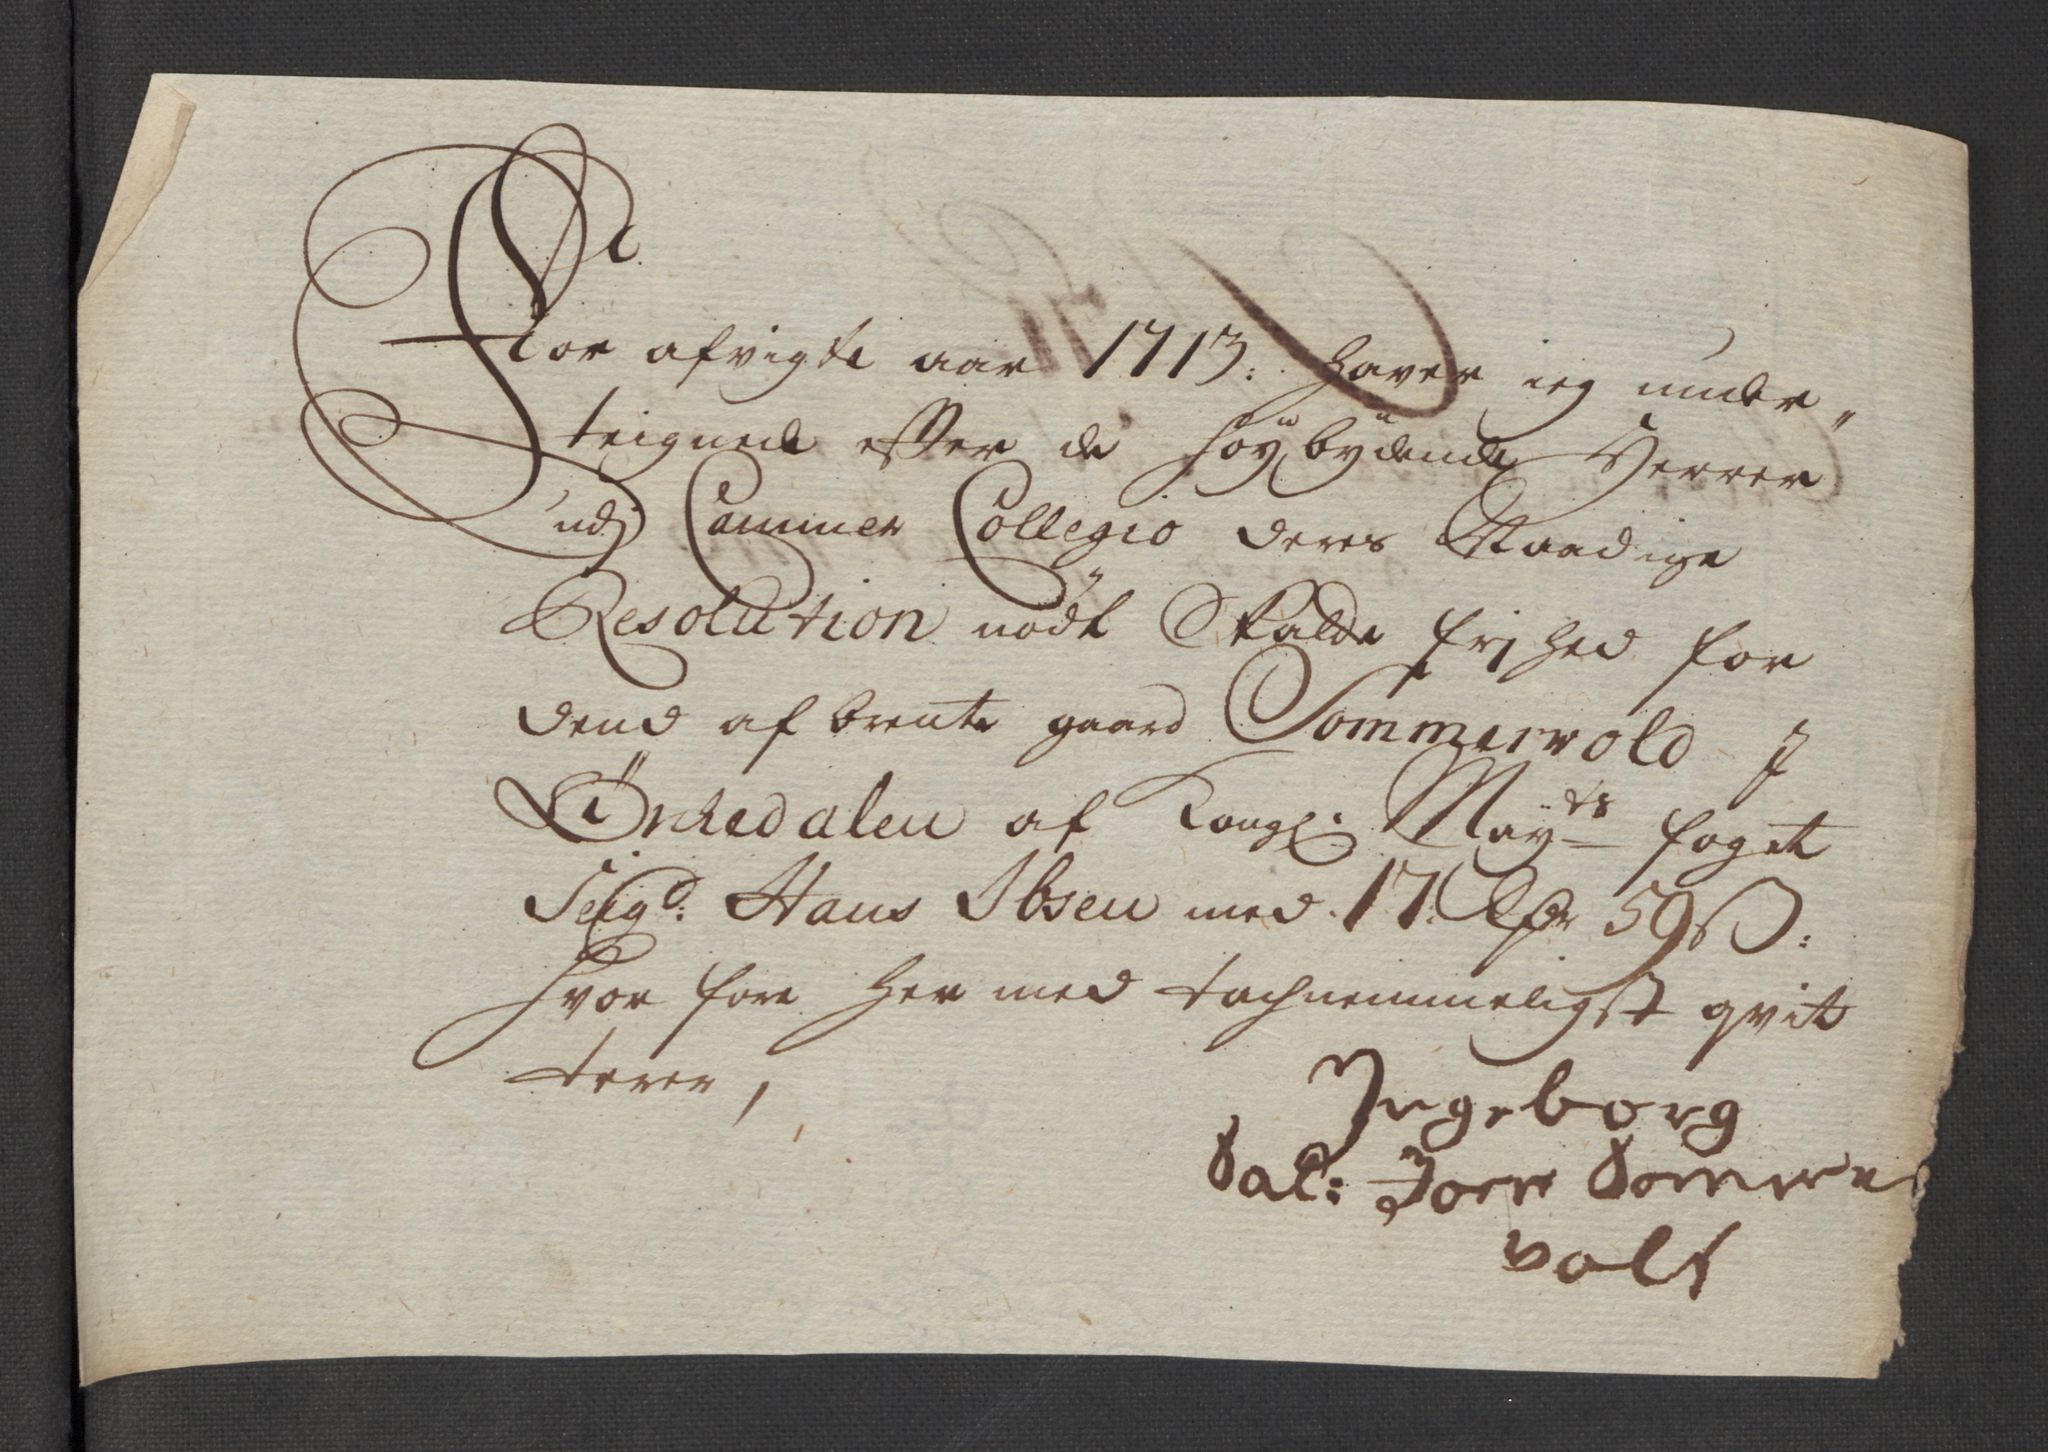 For afvigte aar 1713: haver ieg under„
teignede efter de høÿbÿdende Herrer
udj Cammer Collegio deres Naadige
Resolution nødt Skatte frjhed for
dend af brente gaard Sommervold J
Ørckedalen af Kongl: Maÿts foget
Seigr: Hans Ibsen med 17 Rdr 59 s:
hvor fore her med tachnemmeligst qvit
terer,
Ingeborg
Sal: Joen Somme
volt